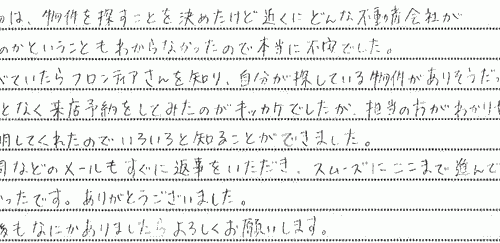 は、物件を探すことを決めたけど近くにどんな不動産会社が
のかということもわからなかったので本当に不安でした。
べていたらフロンティアさんを知り、自分が探している物件がありそうだっ
となく来店予約をしてみたのがキッカケでしたが、担当の方がわかり
明してくれたのでいろいろと知ることができました。
などのメールもすぐに返事をいただき、スムーズにここまで進んで
ったです。ありがとうございました。
もなにかありましたらよろしくお願いします。